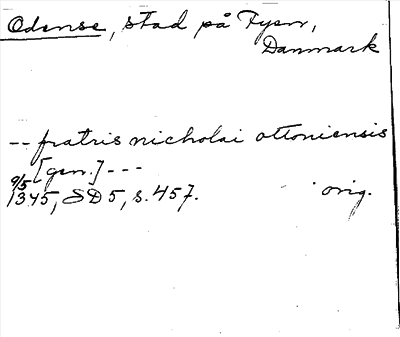 Odense, stad på Fyen,
Danmark
-- fratris nicholai ottoniensis
[gen.] ---
9/5
1345, SD 5, s. 457. orig.